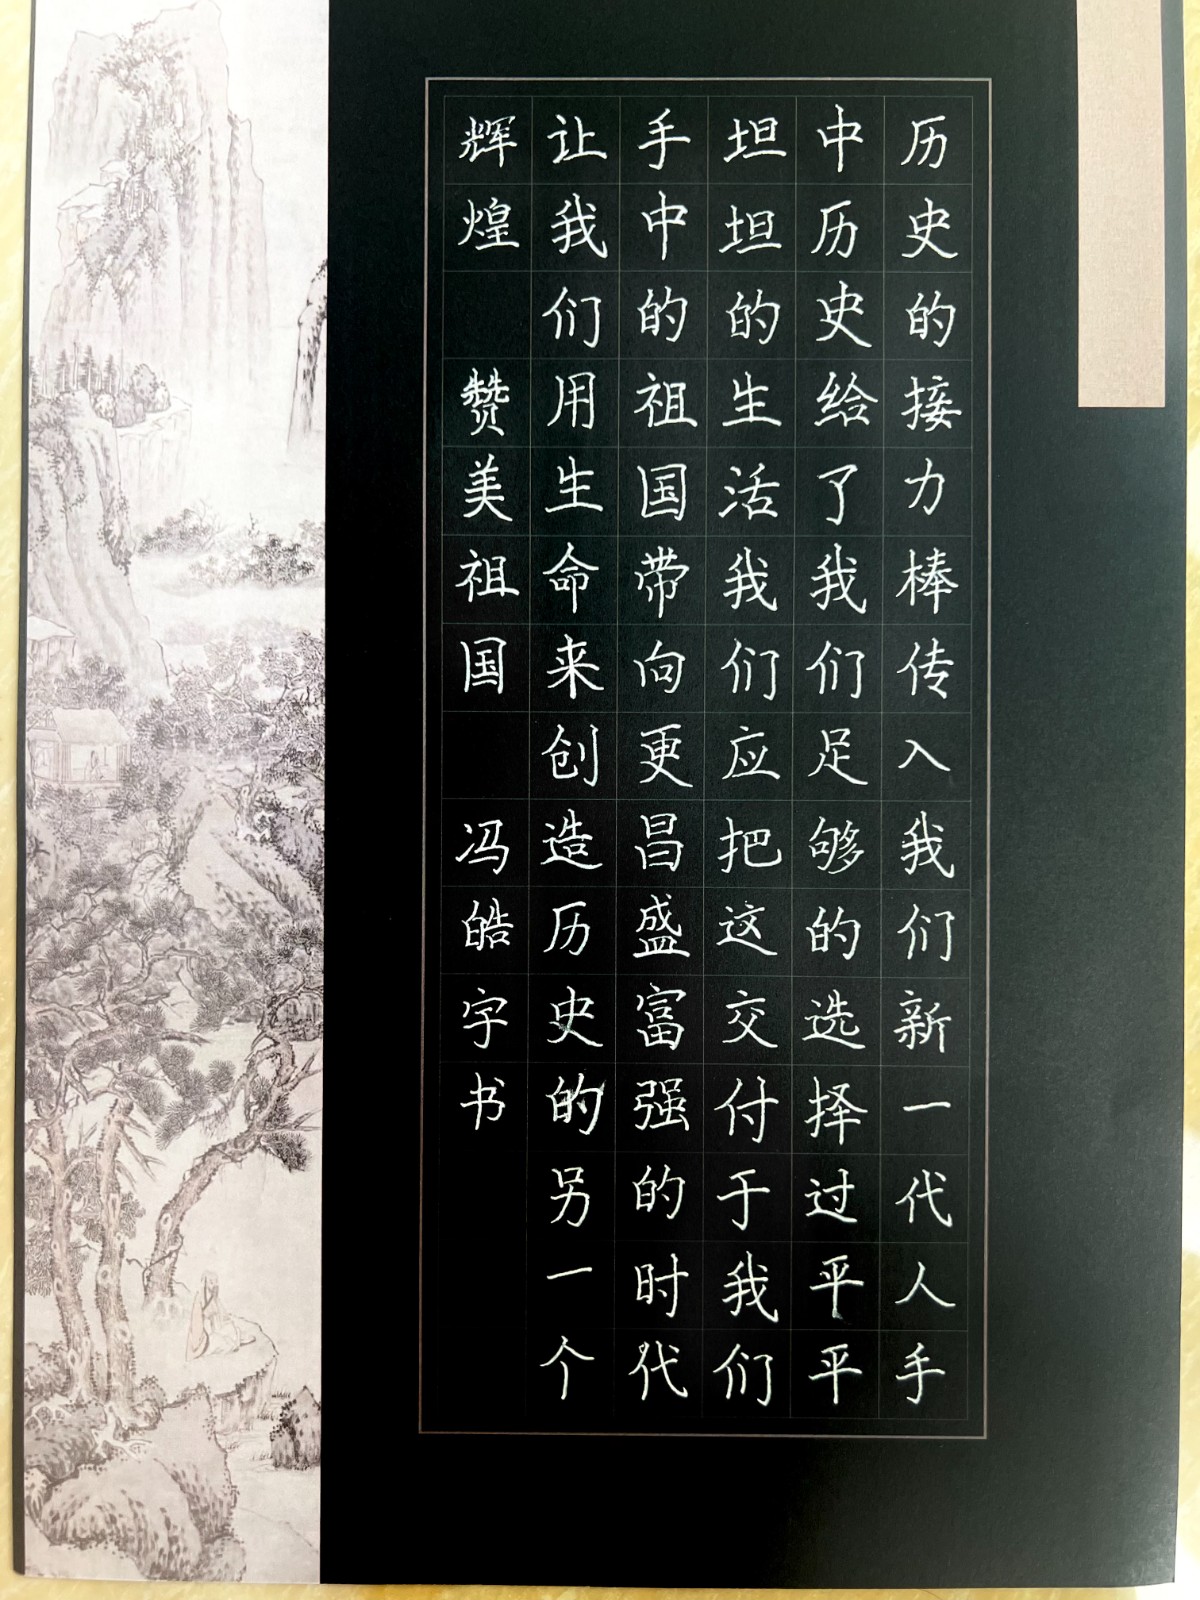 历史的接力棒传入我们新一代人手
中历史给了我们足够的选择过平平
坦坦的生活我们应把这交付于我们
手中的祖国带向更昌盛富强的时代
让我们用生命来创造历史的另一个
辉煌 赞美祖国 冯皓宇书